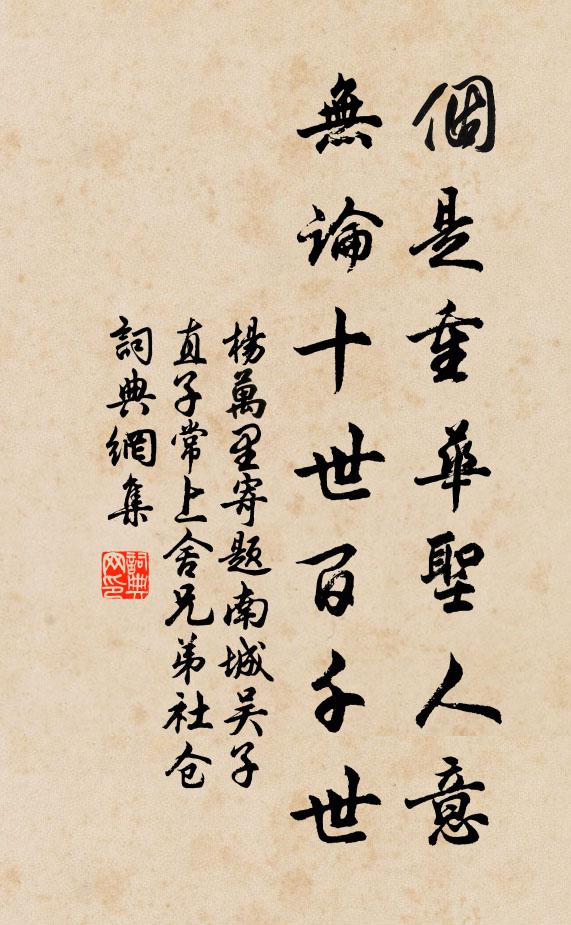 個是重華聖人意
無論十世百千世
楊萬里寄題南城吴子
直子常上舍兄弟社仓
詞典網集
詞典网印